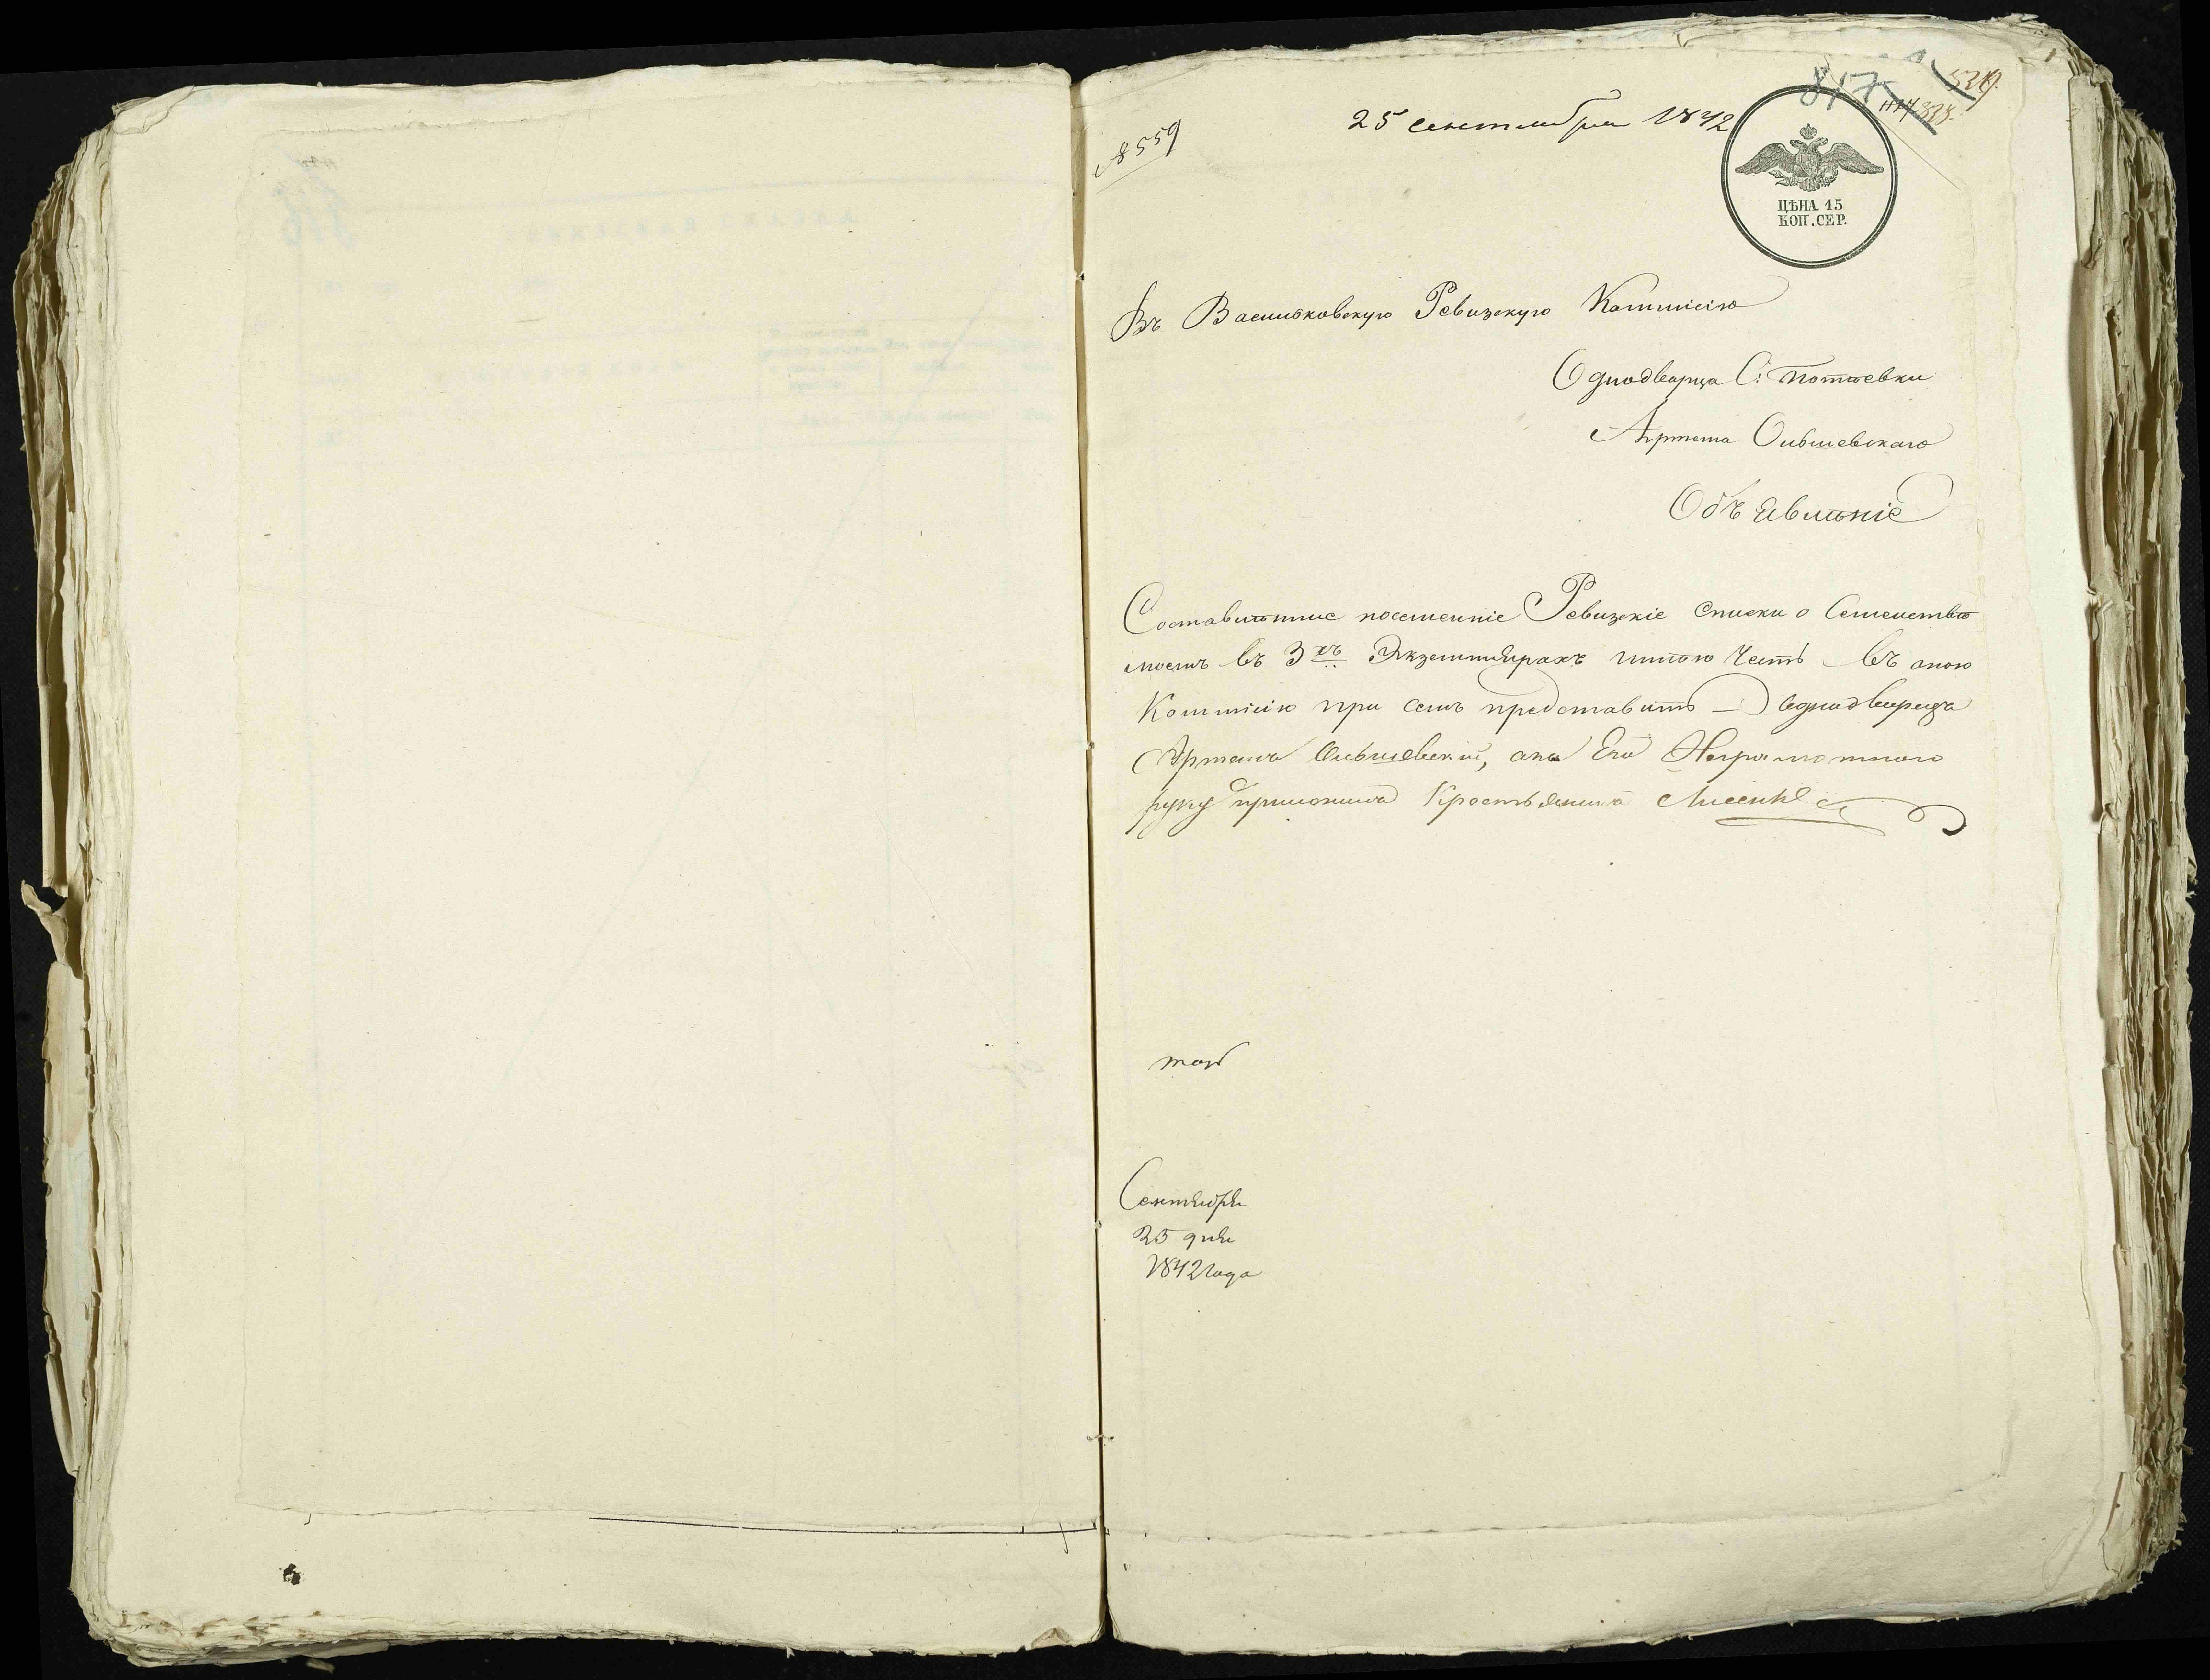 № 559
25 сентября 1842
817
ЦѢНА 15
КОП. СЕР.
Въ Васильковскую Ревизскую Коммисію
Однодворца С: Потіевки
Артема Ольшевскаго
Объявленіе
Составленніе посемейніе Ревизскіе списки о Семействѣ
моемъ въ 3хъ Экземплярахъ имѣю Честь въ оною
Коммисію при семъ представить — Однодворецъ
Артемъ Ольшевскій, а на Его Неграмотнаго
руку приложилъ
Сентября
25 дня
1842 года